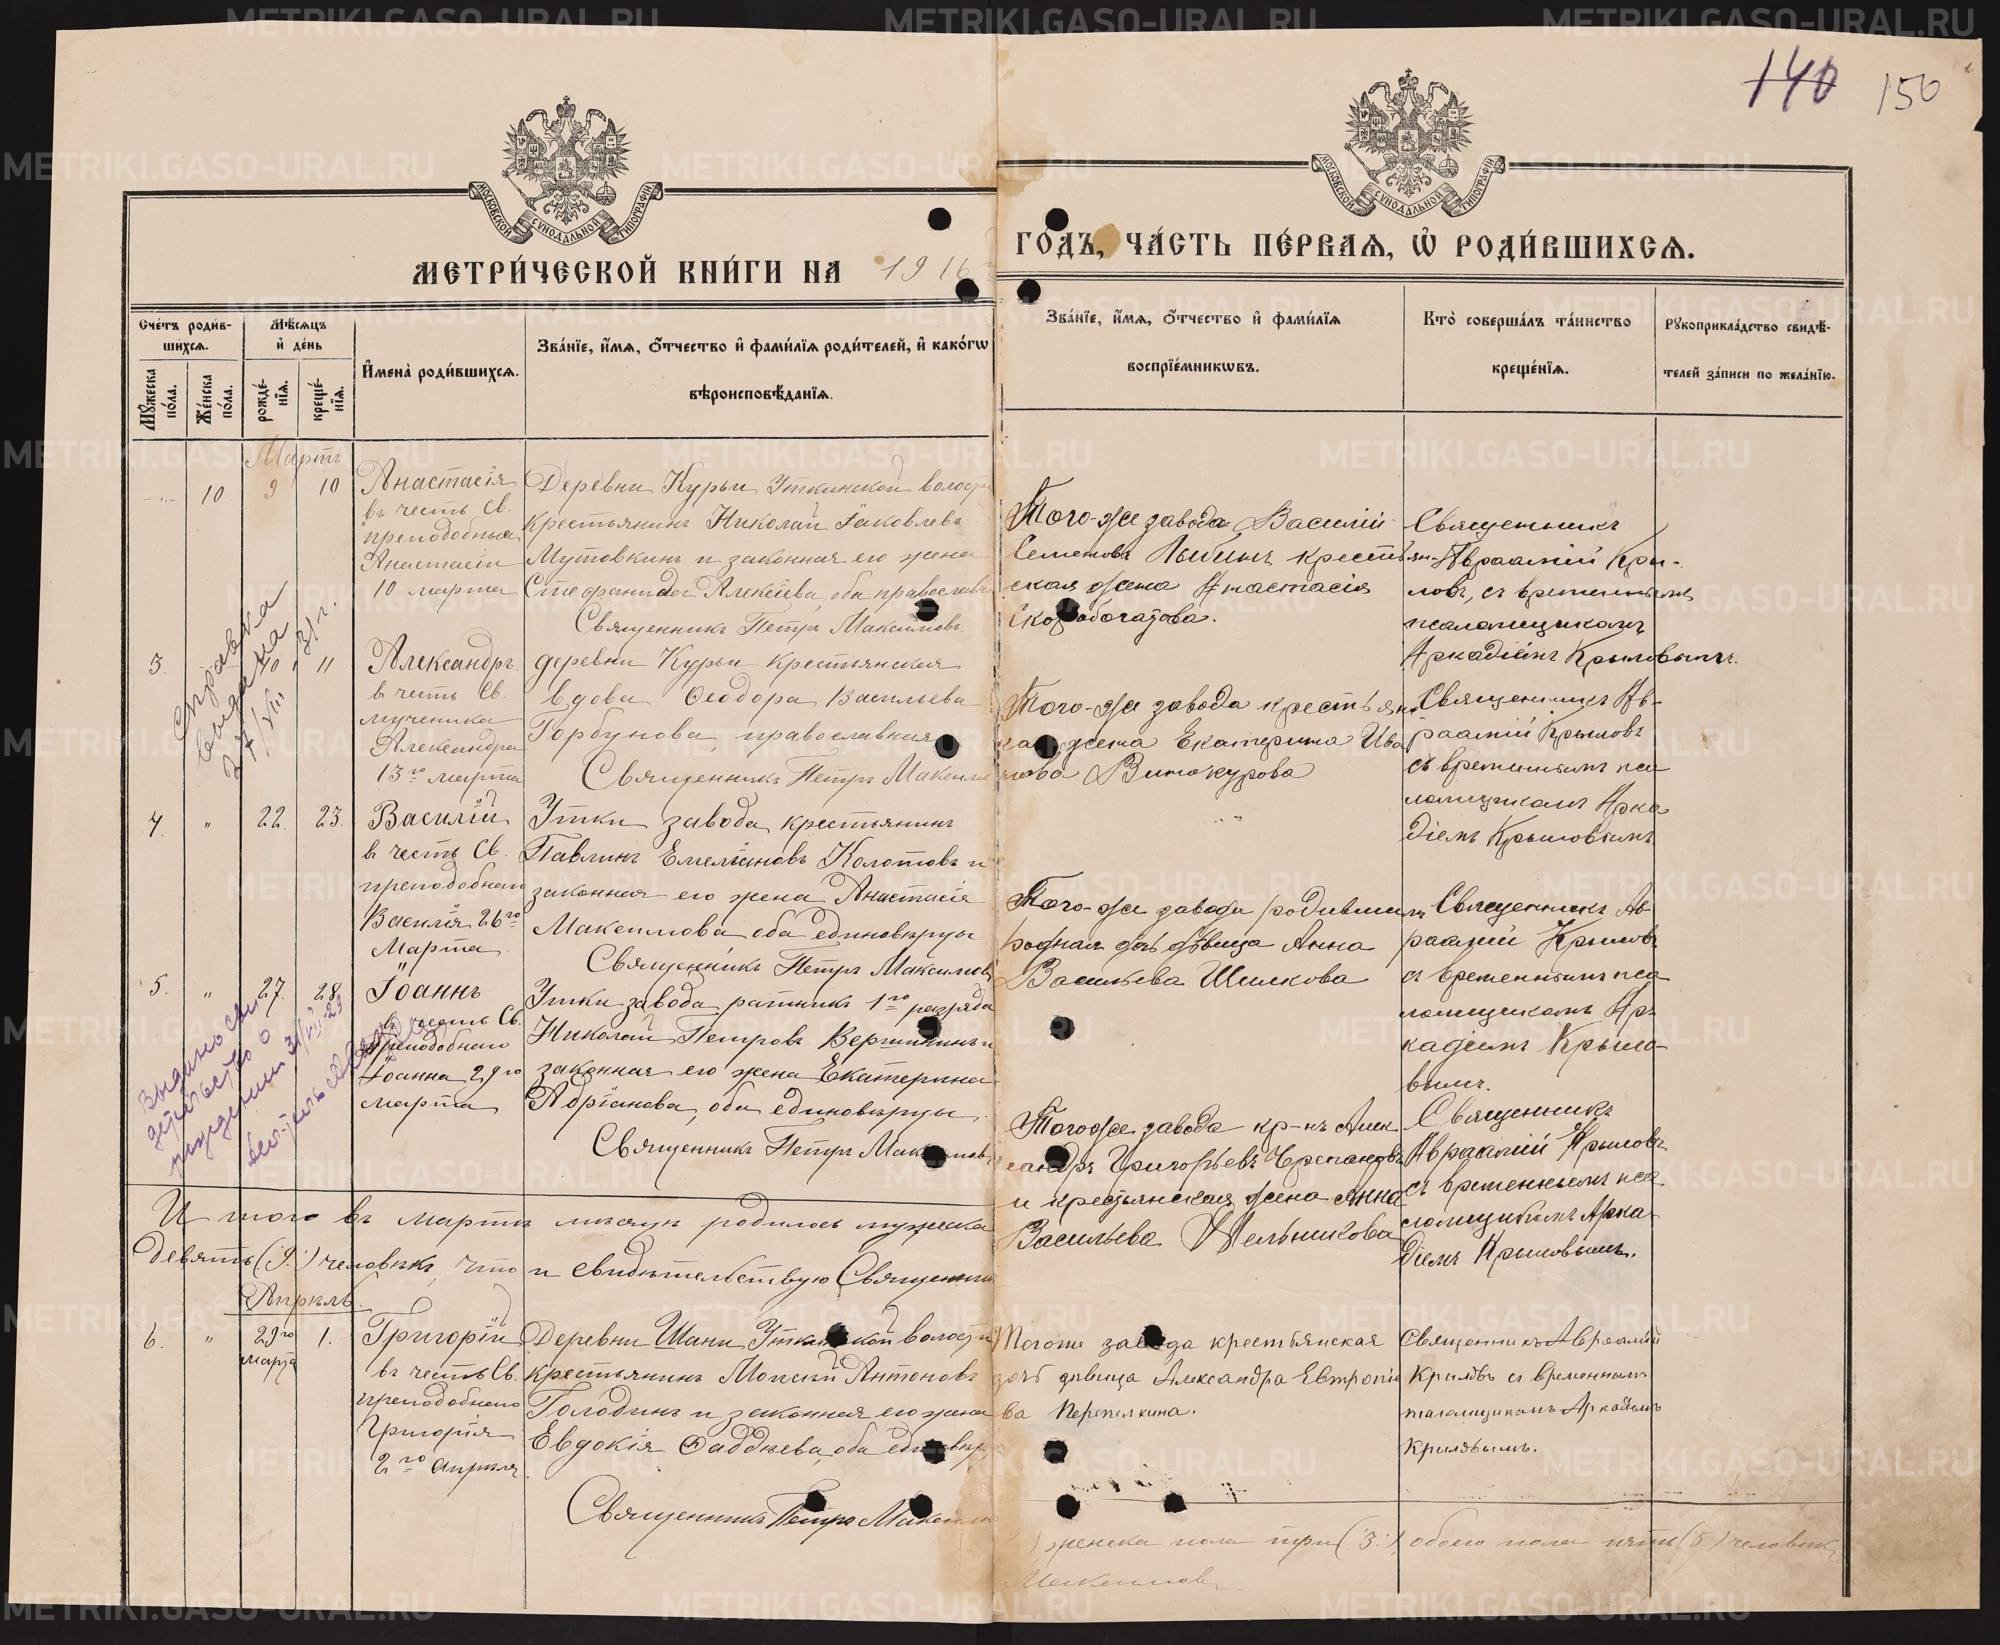 140 150
МОСКОВСКОЙ СѴНОДАЛЬНОЙ ТИПОГРАФІИ
МОСКОВСКОЙ СѴНОДАЛЬНОЙ ТИПОГРАФІИ
МЕТРИ́ЧЕСКОЙ КНИ́ГИ НА 1916 ГО́ДЪ, ЧА́СТЬ ПЕ́РВАѦ, Ѡ҆ РОДИ́ВШИХСѦ.
Сче́тъ роди́в-
шихсѧ.
Мѣ́сѧцъ
и҆ де́нь
Мꙋ́жеска по́ла.
Же́нска по́ла.
рожде́-
нїѧ.
креще́-
нїѧ.
И҆мена̀ роди́вшихсѧ.
Зва́нїе, и҆́мѧ, ѻ҆́тчество и҆ фами́лїѧ роди́телей, и҆ како́гѡ
вѣроисповѣ́данїѧ.
Зва́нїе, и҆́мѧ, ѻ҆́тчество и҆ фами́лїѧ
воспрїе́мникѡвъ.
Кто̀ соверша́лъ та́инство
креще́нїѧ.
Рꙋкоприкла́дство свидѣ́-
телей за́писи по жела́нїю.
Мартъ
10 9 10
Анастасія
въ честь Св.
преподобныя
Анастасіи
10 марта
Деревни Курьи Уткинской волости
крестьянинъ Николай Іаковлевъ
Мутовкинъ и законная его жена
Стефанида Алексіева, оба православн
Священникъ Петръ Максимовъ.
Того-же завода Василій
Семеновъ крестьян-
ская жена Анастасія
Скоробогатова.
Священникъ
Авраамій Кры-
ловъ, съ временнымъ
псаломщикомъ
Аркадіемъ Крыловымъ.
3. 10 11
Справка
выдана
27/VIII 31 г.
Александръ
въ честь Св.
мученика
Александра
13го марта
деревни Курьи крестьянская
вдова Ѳеодора Васильева
Горбунова, православная
Священникъ Петръ Максим
Того-же завода крестьян
ка жена Екатерина Ива
нова Винокурова
Священникъ Ав-
раамій Крыловъ
съ временнымъ пса
ломщикомъ Арка
діемъ Крыловымъ
4. " 22. 23.
Василій
въ честь Св.
преподобнаго
Василія 26го
Марта
Утки завода крестьянинъ
Павлинъ Емеліановъ Колотовъ и
законная его жена Анастасія
Максимова, оба единовѣрцы
Священникъ Петръ Максимовъ
Того-же завода
родная дочь дѣвица Анна
Васильева Шилкова
Священникъ Ав-
раамій Крыловъ
съ временнымъ пса
ломщикомъ Ар
кадіемъ Крыло-
вымъ.
5. " 27. 28
Выдано сви
детельство о
рождении 31/VII-29
Іоаннъ
въ честь Св.
преподобнаго
Іоанна 29го
марта
Утки завода ратникъ 1го разряда
Николай Петровъ Вершининъ и
законная его жена Екатерина
Адріанова, оба единовѣрцы
Священникъ Петръ Максимовъ
Тогоже завода кр-нъ Алек
сандръ Григорьевъ Черепановъ
и крестьянская жена Анна
Васильева Мельникова
Священникъ
Авраамій Крыловъ
съ временнымъ пса
ломщикомъ Арка
діемъ Крыловымъ.
И того въ мартѣ мѣсяцѣ родилось мужска
девять (9.) человѣкъ, что и свидѣтельствую Священни
женска пола три (3.), обоего пола пять (5) человѣкъ
Максимовъ
Апрѣль
6. " 29го 1.
марта
Григорій
въ честь Св.
преподобнаго
Григорія
2го апрѣля
Деревни Шани Уткинской волости
крестьянинъ Моисей Антоновъ
Голодинъ и законная его жена
Евдокія Ѳаддѣева, оба единовѣр
Священникъ Петръ Максим
Тогоже завода крестьянская
дочь дѣвица Александра Евтропіе
ва Перепелкина.
Священникъ Авраамій
Крыловъ съ временнымъ
псаломщикомъ Аркадіемъ
Крыловымъ.
METRIKI.GASO-URAL.RU